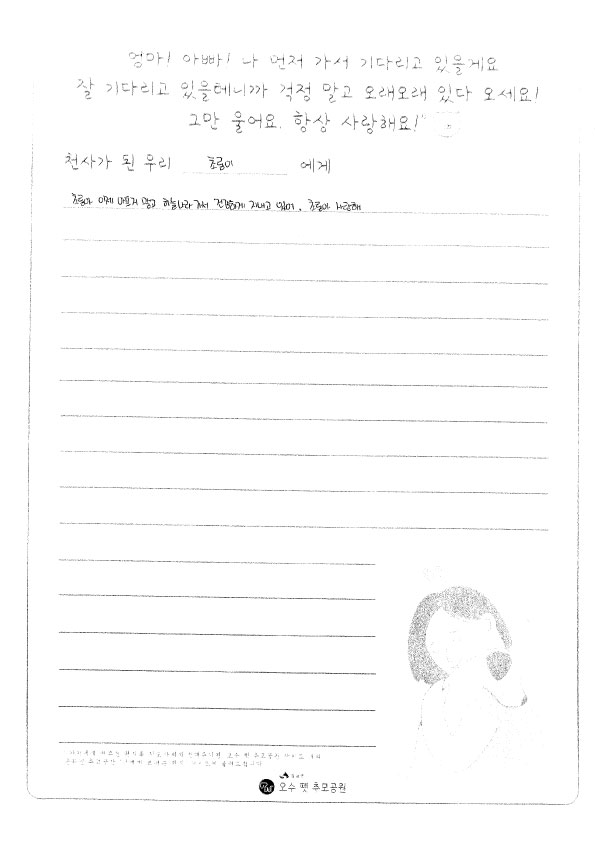 엄마! 아빠! 나 먼저 가서 기다리고 있을게요
잘 기다리고 있을테니까 걱정 말고 오래오래 있다 오세요!
그만 울어요. 항상 사랑해요!"
천사가 된 우리 초롱이 에게
초롱아 이제 아프지 말고 하늘나라 가서 건강하게 지내고 있어. 초롱아 사랑해
오수 펫 추모공원